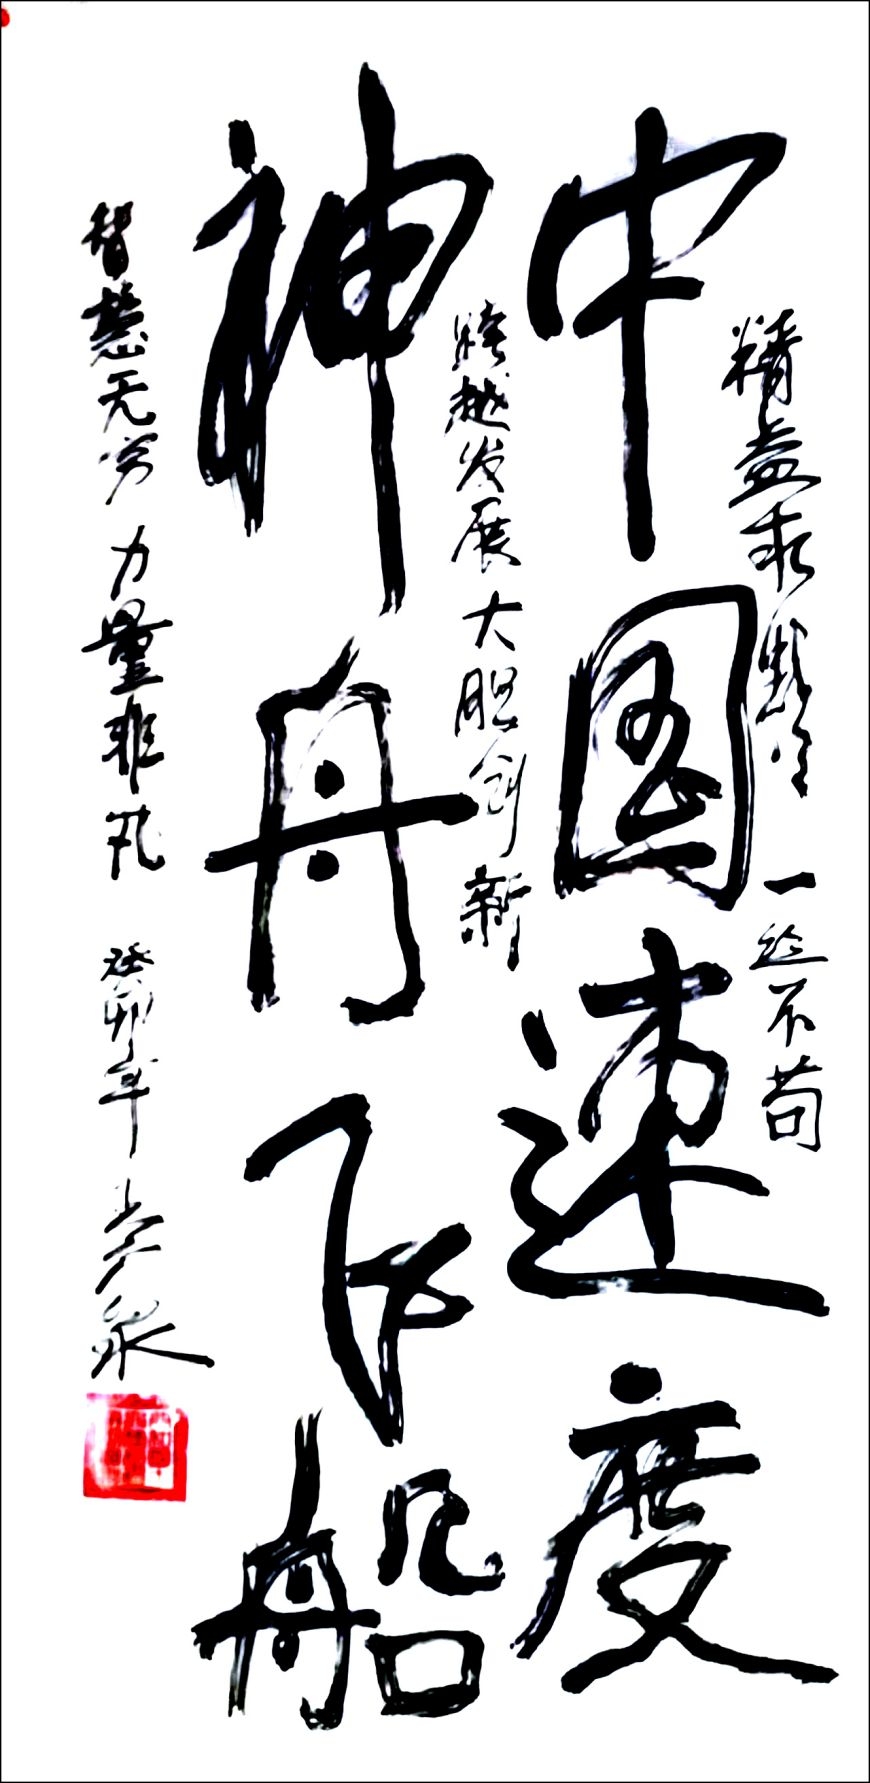 精益求 一丝不苟
中国速度
跨越发展 大胆创新
神舟飞船
智慧无穷 力量非凡 癸卯年 泉